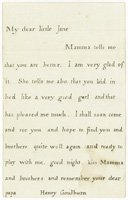 My dear little Jane
Mamma tells me
that you are better. I am very glad of
it. She tells me also that you laid in
bed like a very good girl and that
has pleased me much. I shall soon come
and see you and hope to find you and
brothers quite well again and ready to
play with me, good night, kiss Mamma
and brothers and remember your dear
papa Henry Goulburn